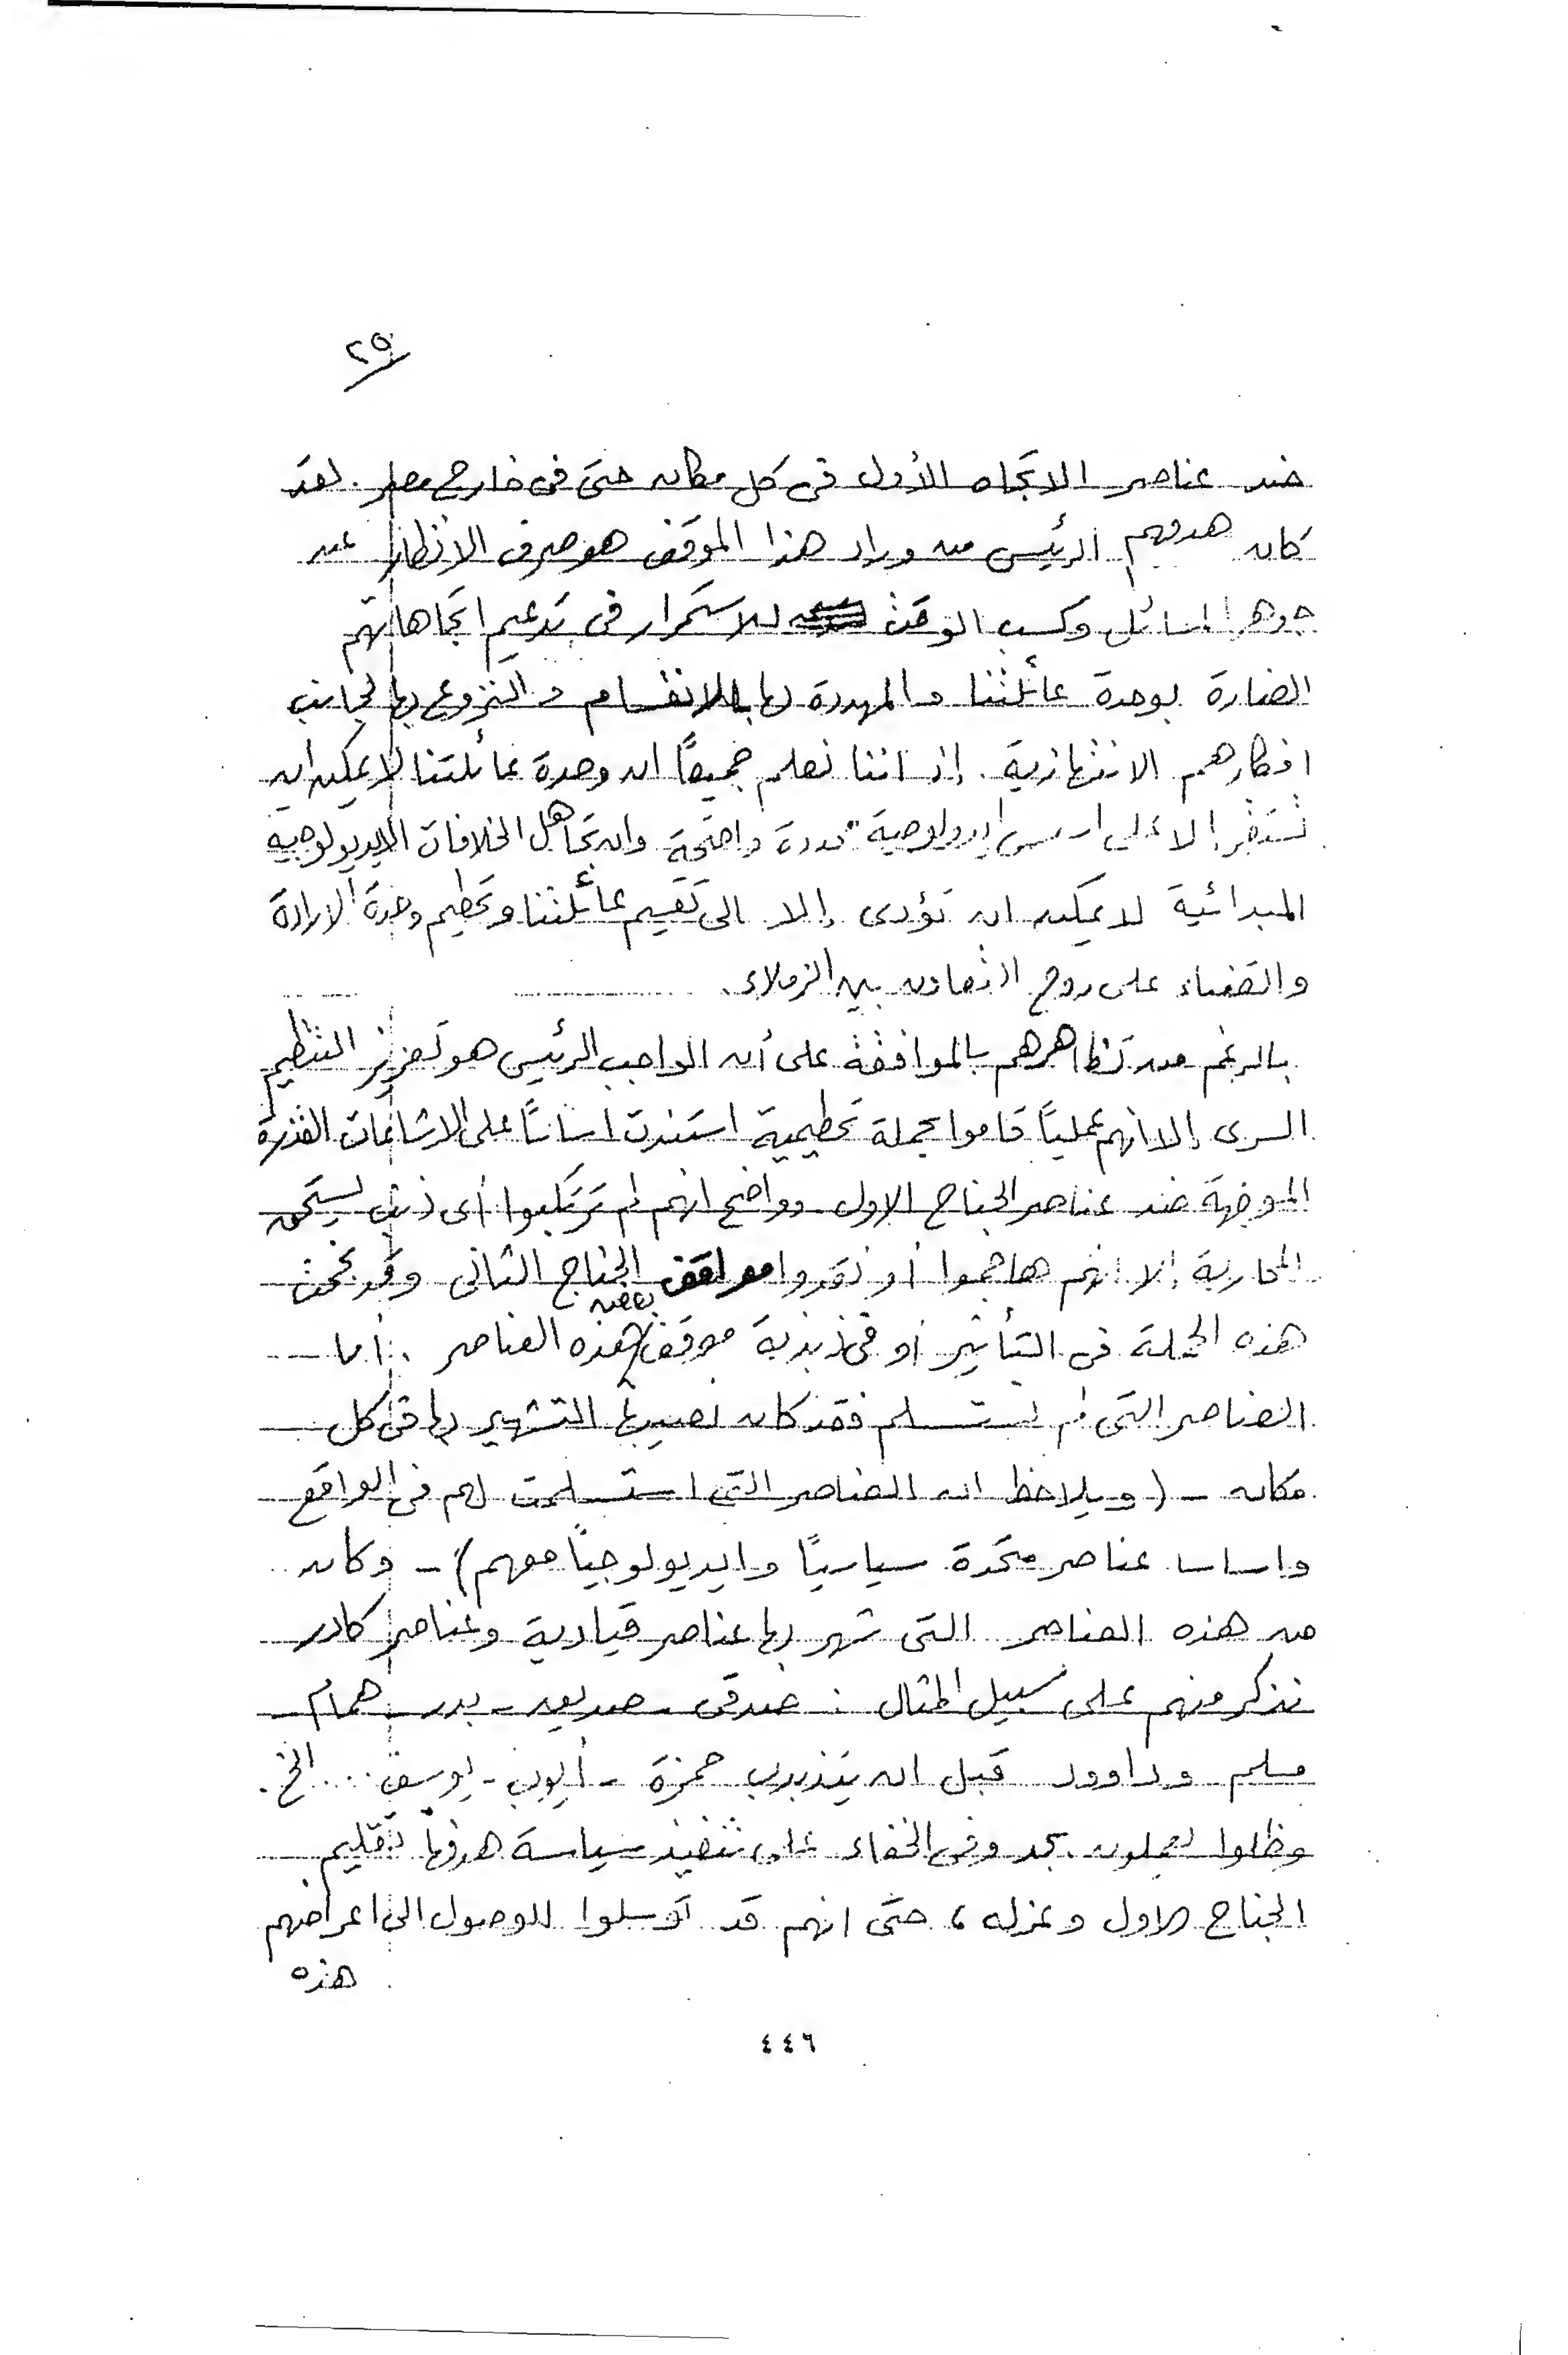 ٢٥
ضد عناصر الاتجاه الأول فى كل مكان حتى فى خارج مصر . لقد
كان هدفهم الرئيسى من وراء هذا الموقف هو صرف الانظار عن
جوهر المسائل وكسب الوقت للاستمرار فى تدعيم اتجاهاتهم
الضارة بوحدة عائلتنا والمهددة لها بالانقسام والنزوع بها لجانب
افكارهم الانتهازية . إذ اننا نعلم جميعًا ان وحدة عائلتنا لا يمكن ان
تستقر إلا على اسس ايديولوجية محددة واضحة وان تجاهل الخلافات الايديولوجية
المبدائية لا يمكن ان تؤدى إلا الى تقسيم عائلتنا وتحطيم وحدة الارادة
والقضاء على روح التعاون بين الزملاء .
بالرغم من تظاهرهم بالموافقة على أن الواجب الرئيسى هو تعزيز التنظيم
السرى إلا انهم عمليًا قاموا بحملة تحطيمية استندت اساسًا على الاشاعات القذرة
الموجهة ضد عناصر الجناح الاول وواضح انهم لم يرتكبوا أى ذنب يستحق
المحاربة إلا انهم هاجموا أو نقدوا مواقف الجناح الثانى وقد نجحت
هذه الحملة فى التأثير أو فى ذبذبة موقف بعض هذه العناصر . أما
العناصر التى لم تستسلم فقد كان نصيبها التشهير بها فى كل
مكان - ( ويلاحظ ان العناصر التى استسلمت لهم فى الواقع
واساسا عناصر متحدة سياسيًا وايديولوجيًا معهم ) - وكان
من هذه العناصر التى شهر بها عناصر قيادية وعناصر كادر
نذكر منهم على سبيل المثال : صدقى - صديق - بدر - همام -
مسلم وداوود قبل ان يتذبذب حمزة - أيوب - يوسف .... الخ .
وظلوا يعملون بجد وفى الخفاء على تنفيذ سياسة هدفها تقليم
الجناح الاول وعزله ، حتى انهم قد توسلوا للوصول الى اغراضهم
هذه
٤٤٦